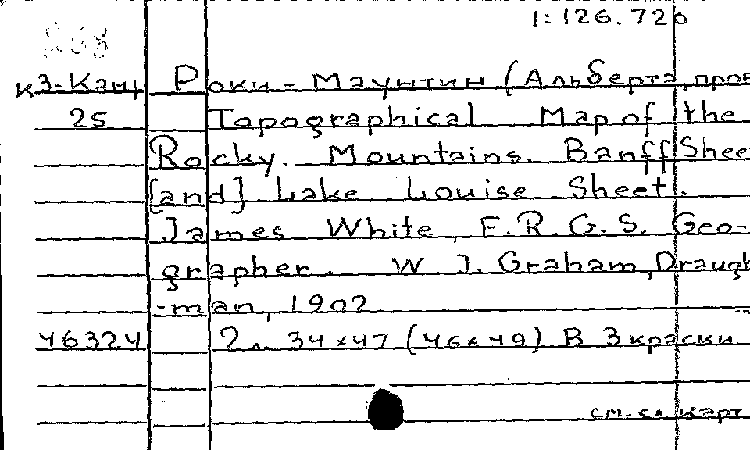 1:126.720
К3-Кан Роки-Маунтин (Альберта, пров
25 Topographical Map of the
Rocky. Mountains. Banff Shee
[and] Lake Louise Sheet.
James White, F.R.G.S. Geo-
grapher. W J. Graham, Draugh
-man, 1902
46324 2 л. 34×47 (46×49) В 3 краски
см. сл. карт